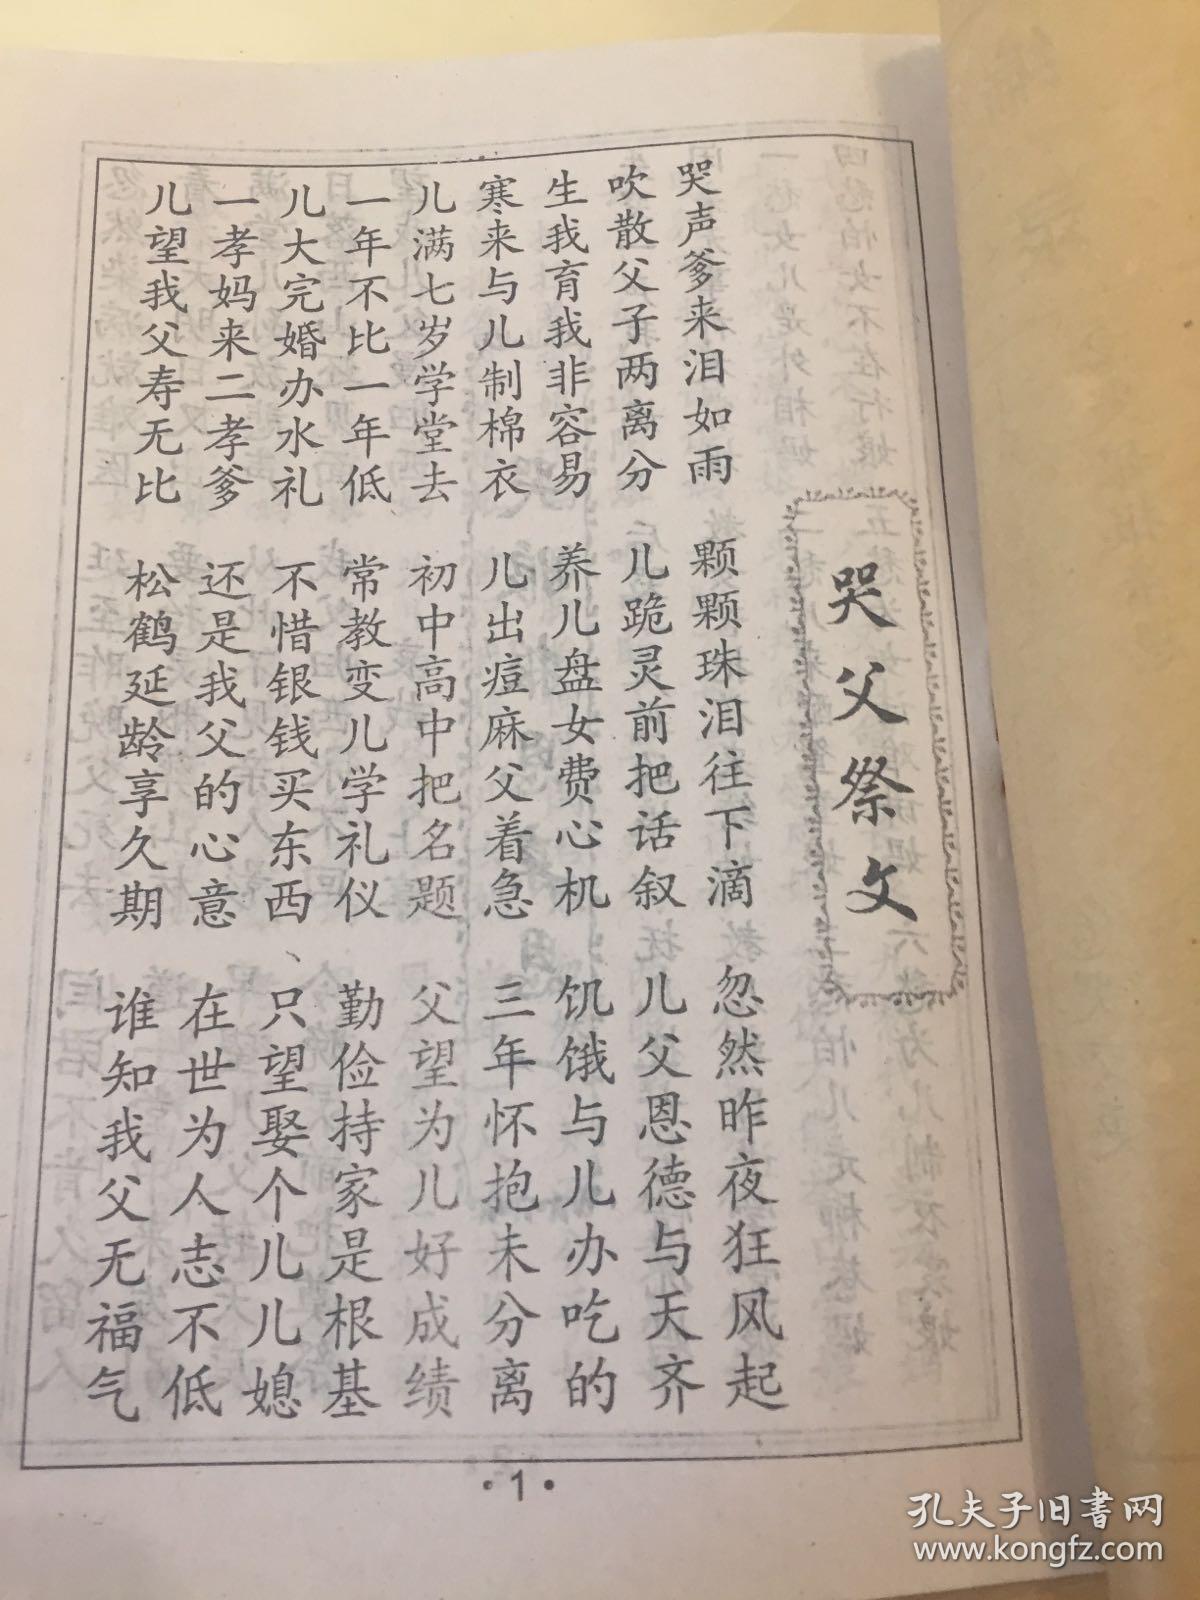 哭父祭文
哭声爹来泪如雨 颗颗珠泪往下滴 忽然昨夜狂风起
吹散父子两离分 儿跪灵前把话叙 儿父恩德与天齐
生我育我非容易 养儿盘女费心机 饥饿与儿办吃的
寒来与儿制棉衣 儿出痘麻父着急 三年怀抱未分离
儿满七岁学堂去 初中高中把名题 父望为儿好成绩
一年不比一年低 常教变儿学礼仪 勤俭持家是根基
儿大完婚办水礼 不惜银钱买东西、 只望娶个儿儿媳
一孝妈来二孝爹 还是我父的心意 在世为人志不低
儿望我父寿无比 松鹤延龄享久期 谁知我父无福气
·1·
孔夫子旧书网
www.kongfz.com